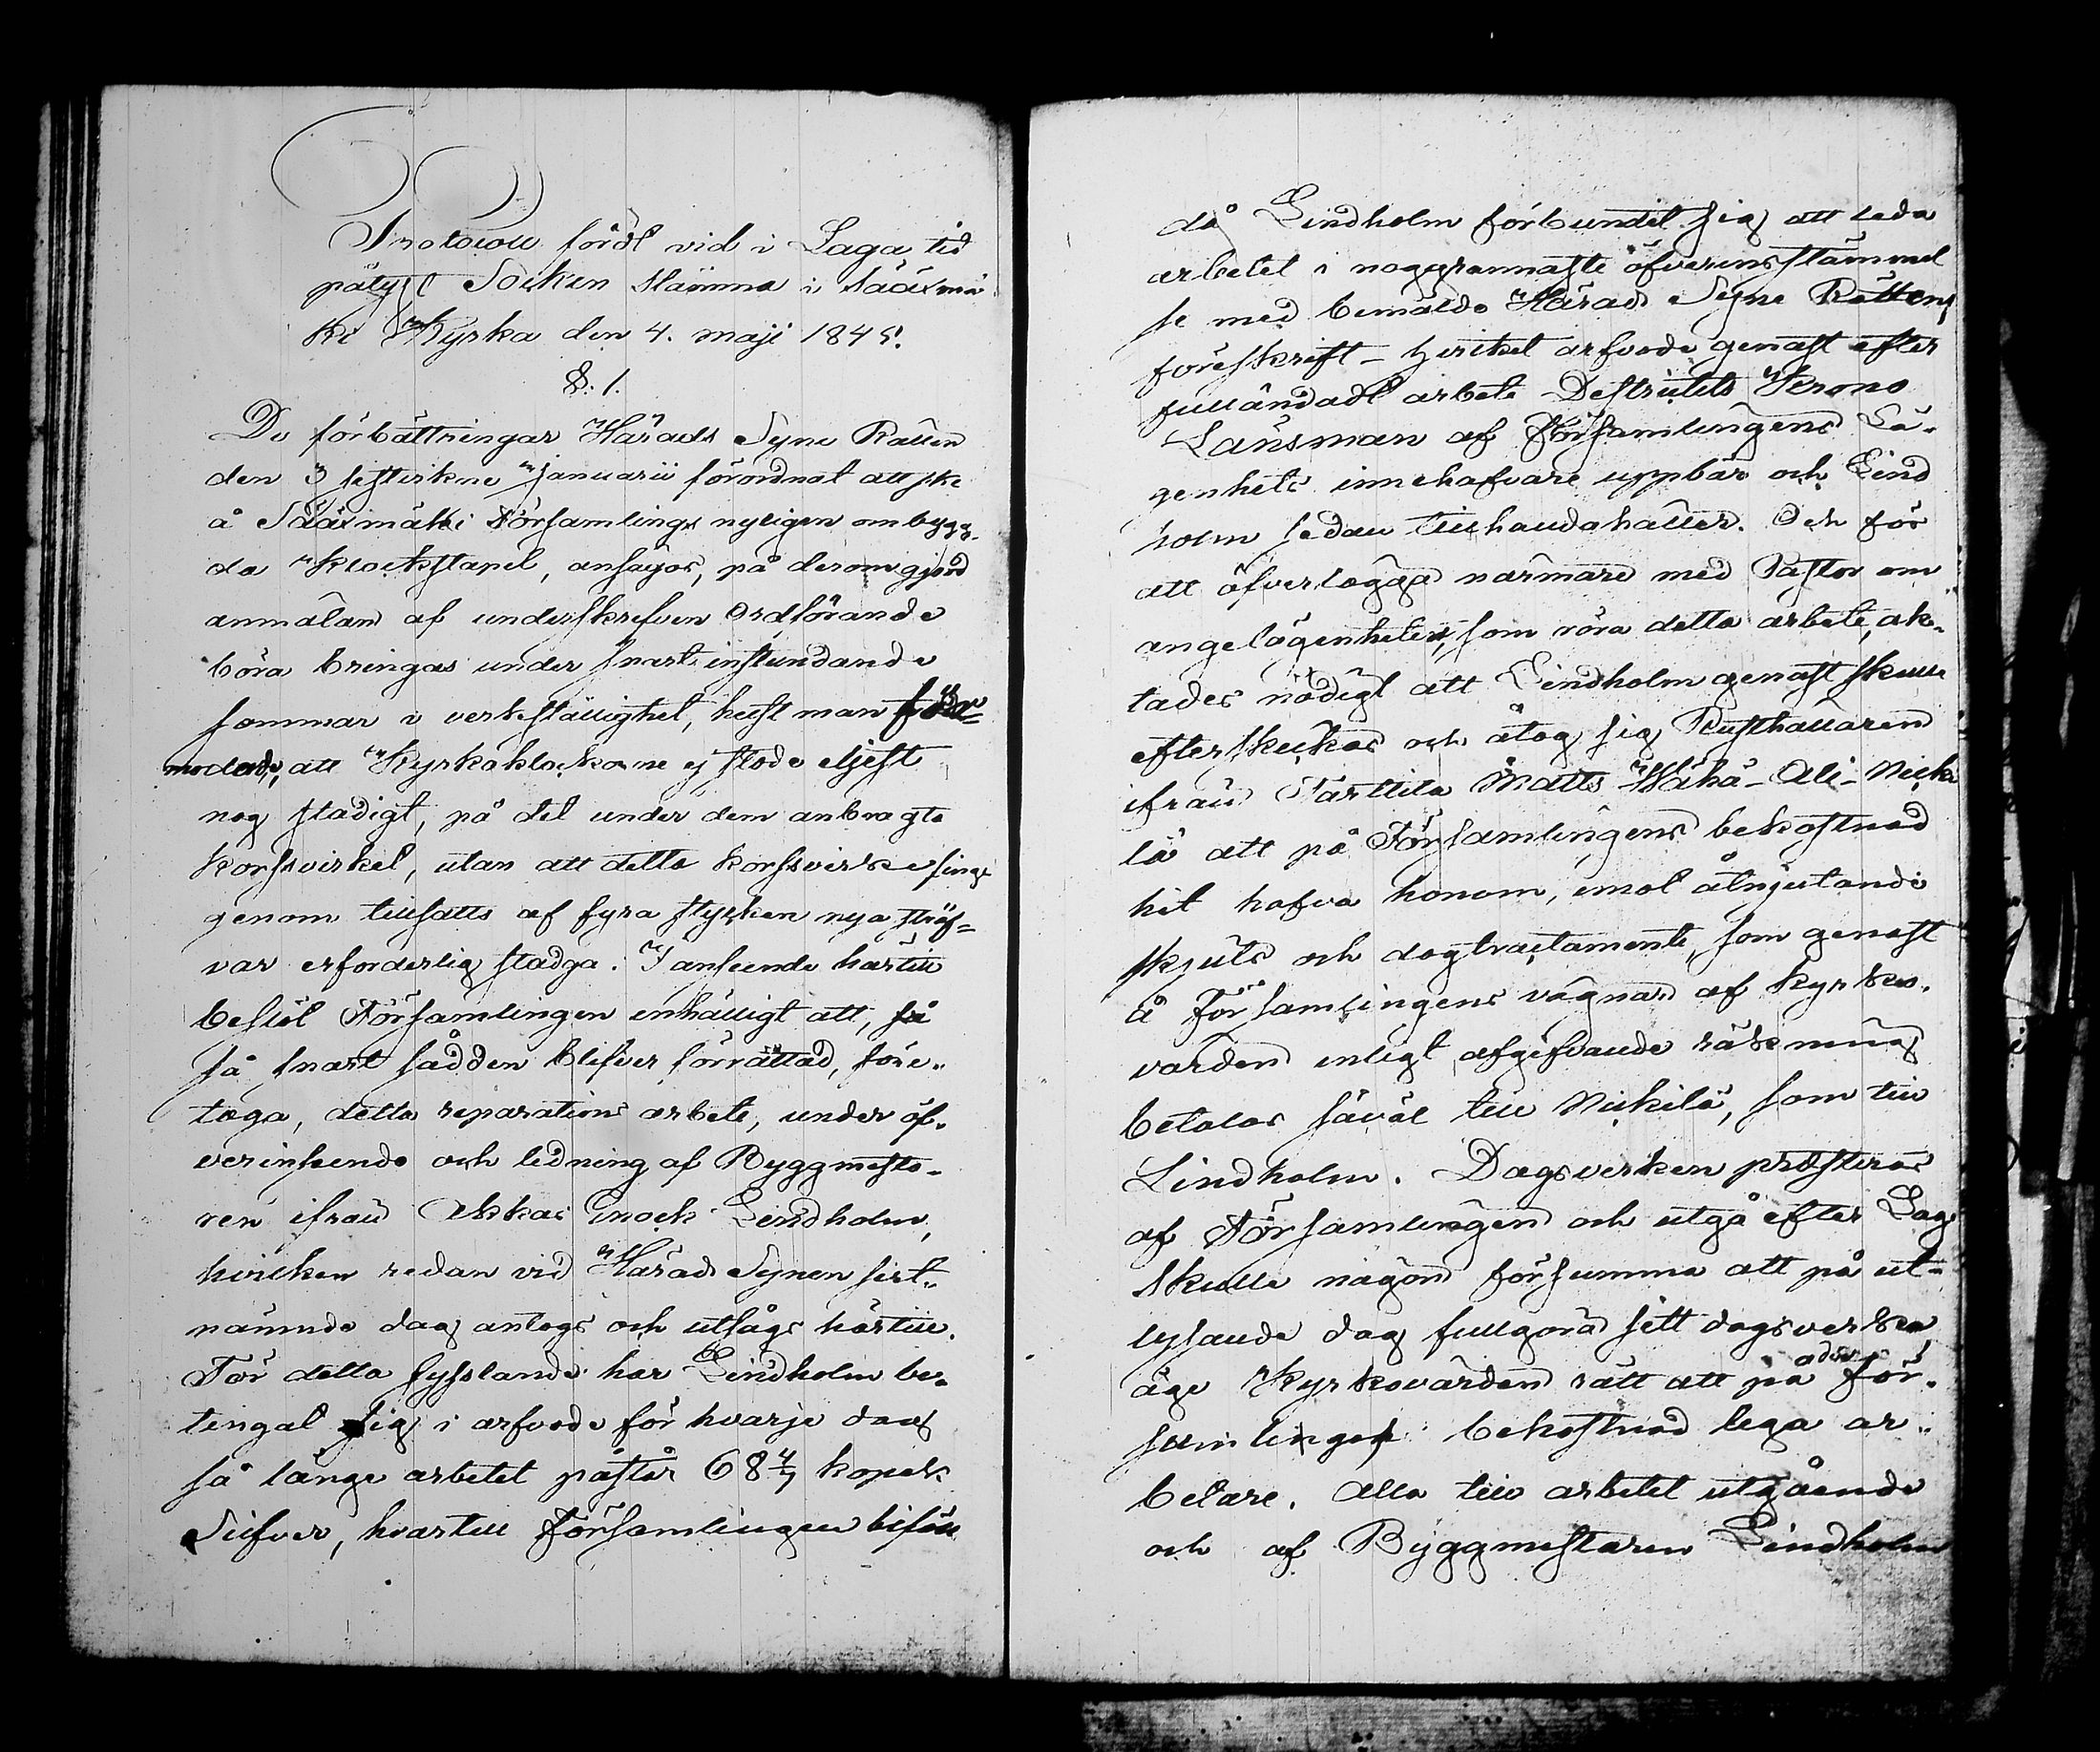 Protocoll fördt vid i Laga tid
pålyst Socken stämma i Sääxmä
ki Kyrka den 4. maji 1845.
§. 1.
De förbättringar Härads Syne Rätten
den 3 sistledne Januarii förordnat att ske
å Sääxmäki Församlings nyligen ombygg-
da Klockstapel, ansågos, på derom gjord
anmälan af underskrefven Ordförande
böra bringas under snart instundande
sommar i verkställighet, helst man
modade, att Kyrkoklockorne ej stode eljest
nog stadigt, på det under dem anbragte
korssvirket, utan att detta korssvirke finge
genom tillsatts af fyra stycken nya sträf-
var erforderlig stadga. I anseende härtill
beslöt Församlingen enhälligt att, så
så snart sådden blifver förrättad, före-
taga, detta reparations arbete, under öf-
verinseende och ledning af Byggmästa-
ren ifrån Akkas Enock Lindholm,
hvilken redan vid Härads Synen sist-
nämnde dag antogs och utsågs härtill.
För detta sysslande har Lindholm be-
tingat sig i arfvode för hvarje dag
så länge arbetet påstår 68 4/7 kopek
Silfver, hvartill Församlingen biföll
då Lindholm förbundit sig att leda
arbetet i noggrannaste öfverensstämmel
se med bemälde Härads Syne Rättens
föreskrift – hvilket arfvode genast efter
fulländadt arbete Destrictets Krono
Länsman af Församlingens Lä-
genhets innehafvare uppbär och Lind
holm sedan tillhandahåller. Och för
att öfverlägga närmare med Pastor om
angelägenheter, som röra detta arbete, ak-
tades nödigt att Lindholm genast skulle
efterskickas och åtog sig Rusthållaren
ifrån Tarttila Matts Wähä-Ali-Nicki
lä att på Församlingens bekostnad
hit hafva honom, emot åtnjutande
skjuts och dagtractamente, som genast
å Församlingens vägnar af Kyrko-
värden enligt afgifvande räkning
betalas såväl till Nickilä, som till
Lindholm. Dagsverken præsteras
af Församlingen och utgå efter Lag
Skulle någon försumma att på ut-
lysande dag fullgöra sitt dagsverke,
äge Kyrkovärden rätt att på för-
samlingens bekostnad lega ar-
betare. Alla till arbetet utgående
och af Byggmästaren Lindholm